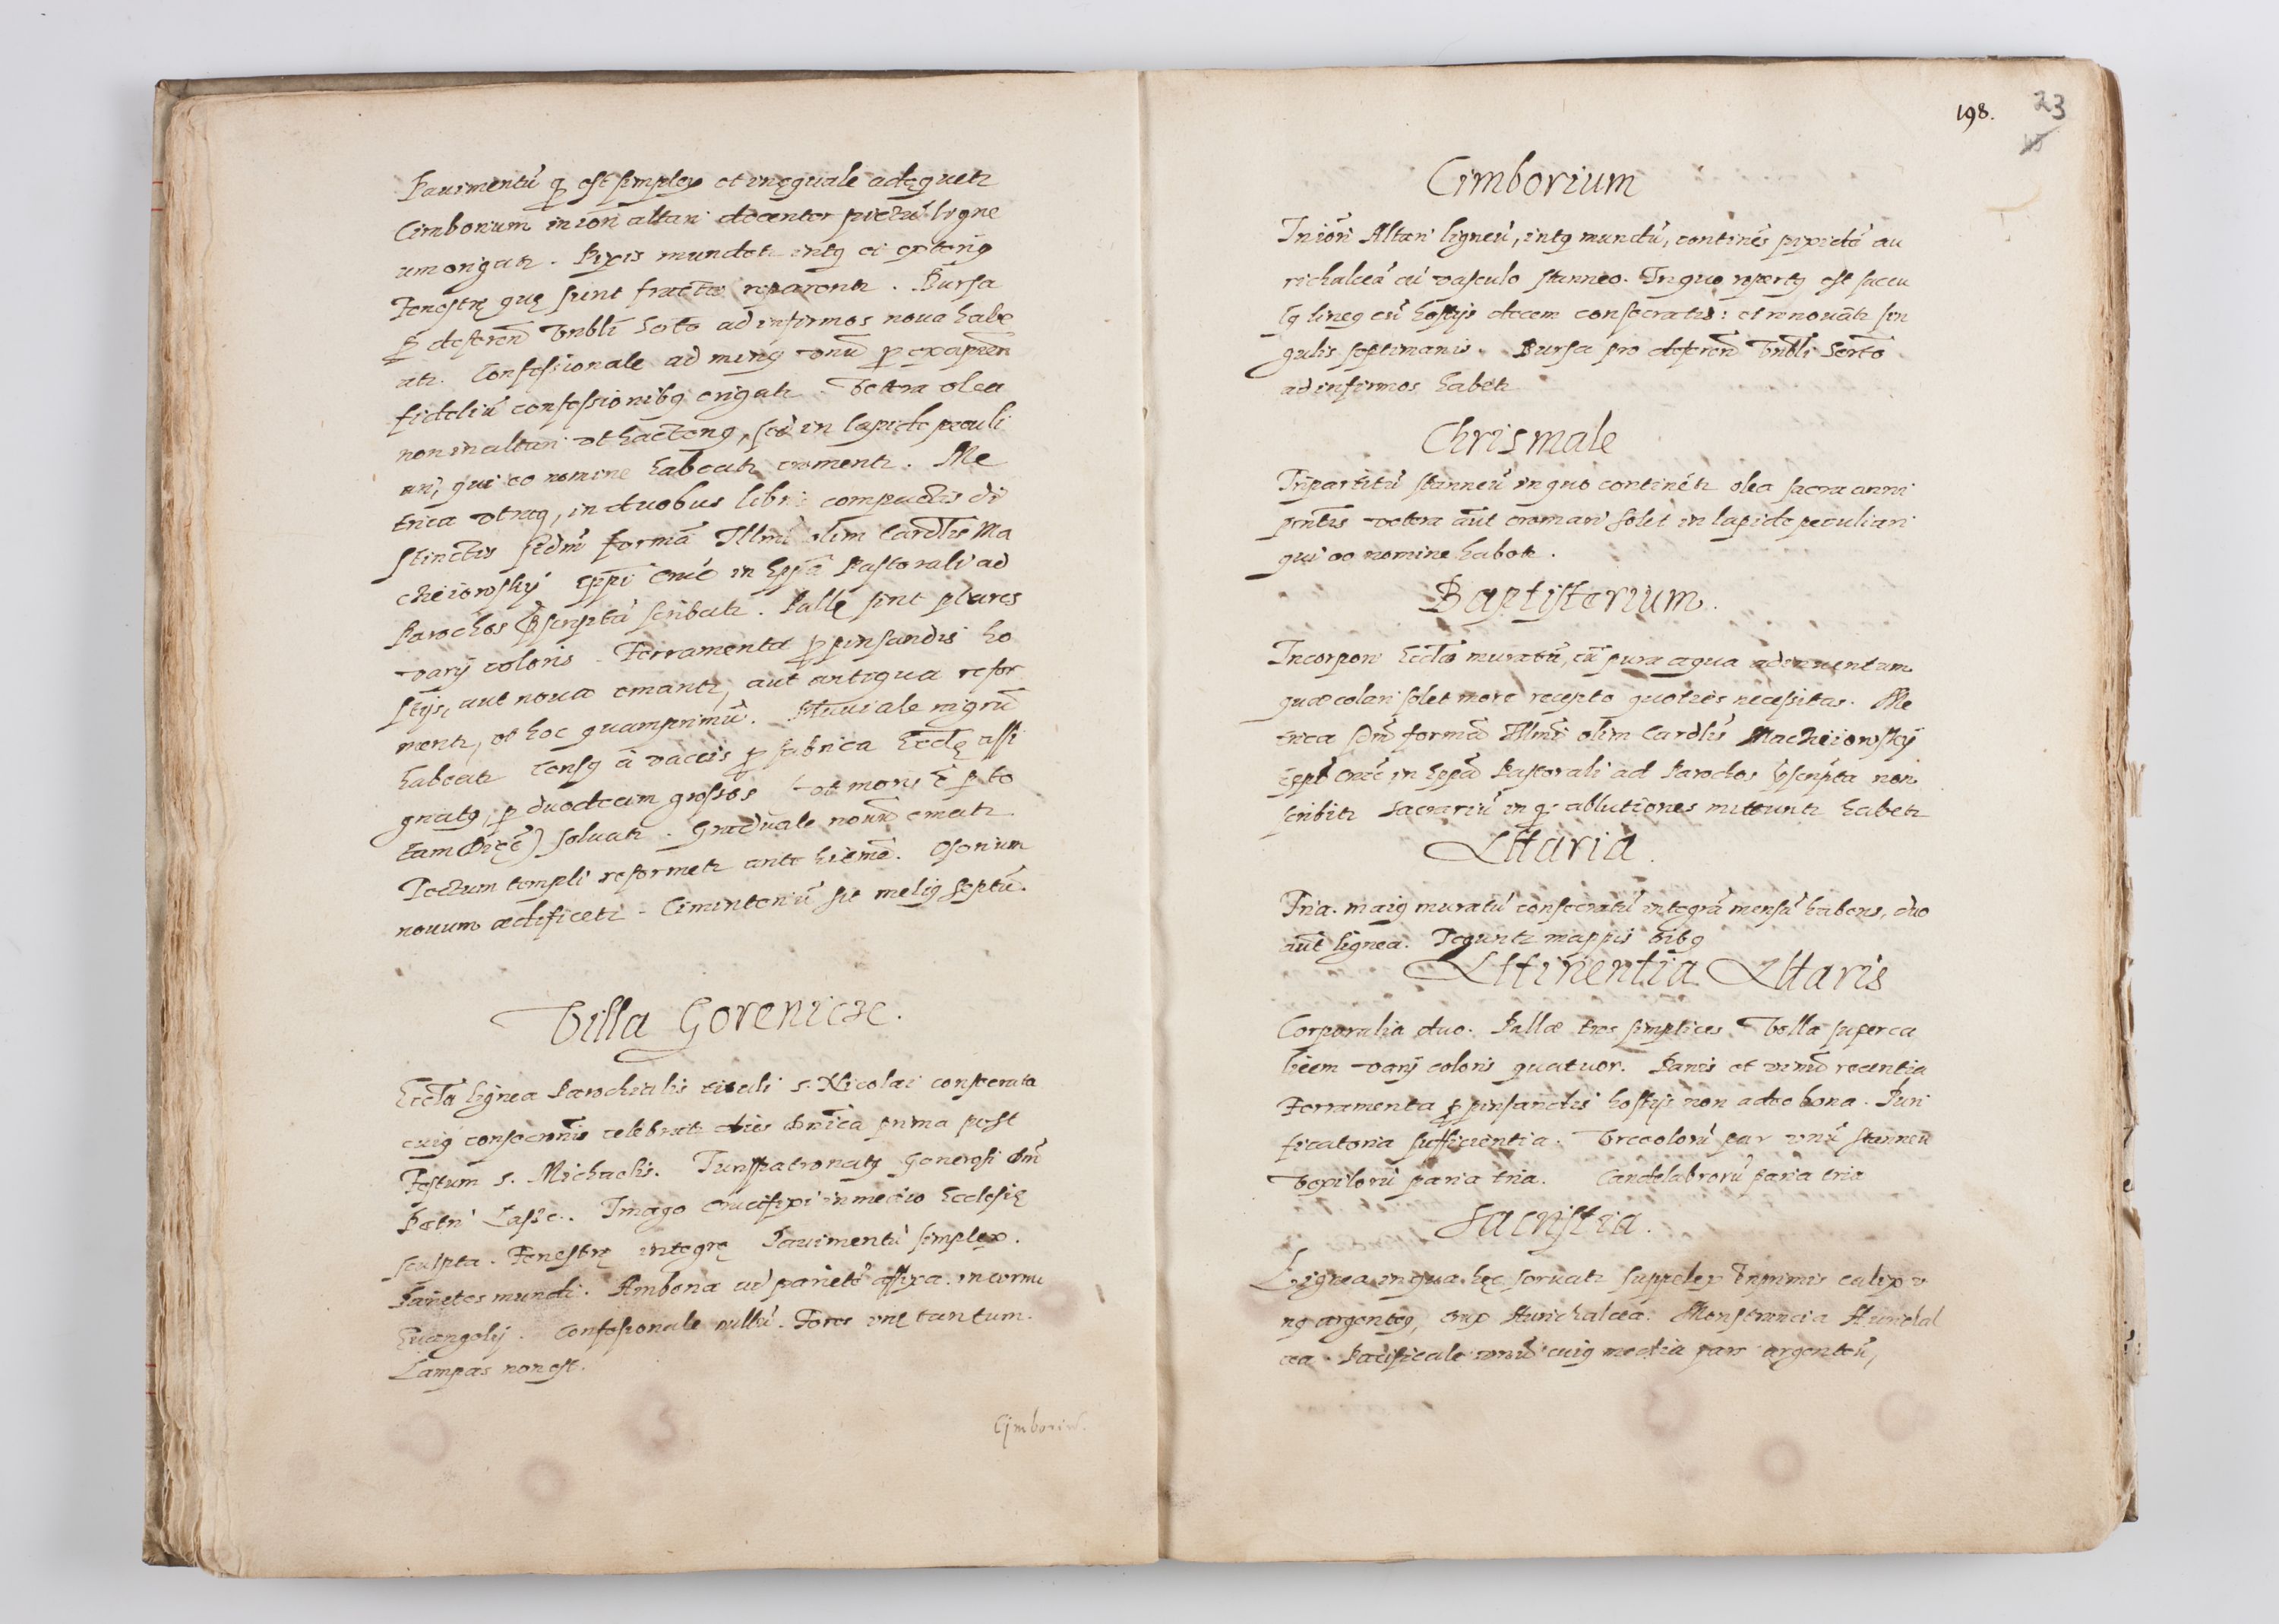 Pauimentũ q̃ est simplex et inęquale adęquetr
Cimborium in iori altari decenter pictũ ligne
um erigatr. Pixis mundetr intꝫ et exteriꝫ
Fenestrę quę sunt fractæ reparentr. Bursa
ꝓ deferend Vnbli Scto ad infirmos noua habe
atr. Confessionale ad minꝫ vnũ ꝓ excipien
fideliũ confessionibꝫ erigatr. Vetera olea
non in altari vt hactenꝫ, sed in lapide peculi
ari, qui eo nomine habeatr crementr. Me
trica vtraqꝫ, in duobus libris compactis di
stinctis scdm̃ formã Illmi olim Cardlis Ma
cheiowsky Eppi Crac̃ in Eppã Pastorali ad
Parochos ꝓscriptã scribatr. Pallę sint plures
varij coloris. Ferramenta ꝓ pinsandis ho
stijs, aut noua emantr, aut antiqua refor
mentr, et hoc quamprimũ. Pluuiale nigrũ
habeatr Censꝫ a vaccis ꝓ fabrica Eccłę assi
gnatꝫ, ꝓ duodecim grossos (vt moris ẽ ꝑ to
tam Dięc̃) soluatr. Graduale nouũ ematr
Tectum templi reformetr ante hiemẽ. Osorium
nouum ædificetr. Ciminteriũ sit meliꝫ septũ.
Villa Gorenicze.
Eccła lignea Parochialis tituli S. Nicolai consecrata
cuiꝫ consecrõnis celebratr dies Dnica prima post
Festum S. Michaelis. Iuspatronatꝫ Generosi Dni
Petri Lassc.. Imago Crucifixi in medio Ecclesię
sculpta. Fenestrę integrę Pauimentũ simplex.
Parietes mundi. Ambona ad parietẽ affixa. in cornu
Euangelij. Confessionale nullũ. Fores vnę tantum.
Lampas non est.
Cimboriũ.
198. 23
Cimborium
In iori Altari ligneũ, intꝫ mundũ, continẽs pixidẽ au
richalceã cũ vasculo stanneo. In quo repertꝫ est saccu
lꝫ lineꝫ cũ hostijs decem consecratis: et renouãtr sin
gulis septimanis. Bursa pro deferend Vnbli Scrto
ad infirmos habetr
Chrismale
Tripartitũ stanneũ in quo continẽtr olea sacra anni
pntis vetera aũt cremari solet in lapide peculiari
qui eo nomine habetr.
Baptisterium.
In corpore Eccłæ muratũ, cũ pura aqua adtenentum
quæ colari solet more recepto quoties necessitas. Me
trica scdm̃ formã Illmi olim Cardlis Macheiowsky
Eppi Crac̃ in Eppã Pastorali ad Parochos ꝓscripta non
scribitr Sacrariũ in q̃ ablutiones mittuntr habetr
Altaria.
Tria. maiꝫ muratũ consecratũ integrã mensã habens, duo
aũt lignea. Teguntr mappis tribꝫ
Attinentia Altaris
Corporalia duo. Pallæ tres simplices Vella super ca
licem varij coloris quatuor. Panis et vinũ recentia
Ferramenta ꝓ pinsandis hostijs non adeo bona. Puri
ficatoria sufficientia. Vrceolorũ par vnũ stanneũ
Vexilorũ paria tria. Candelabrorũ paria tria
Sacristia.
Lignea in qua hęc seruatr suppelex Inprimis calix v
nꝫ argenteꝫ, crux Aurichalcea. Monstrancia Aurichal
cea. Pacificale vnũ cuiꝫ media pars argenteũ,